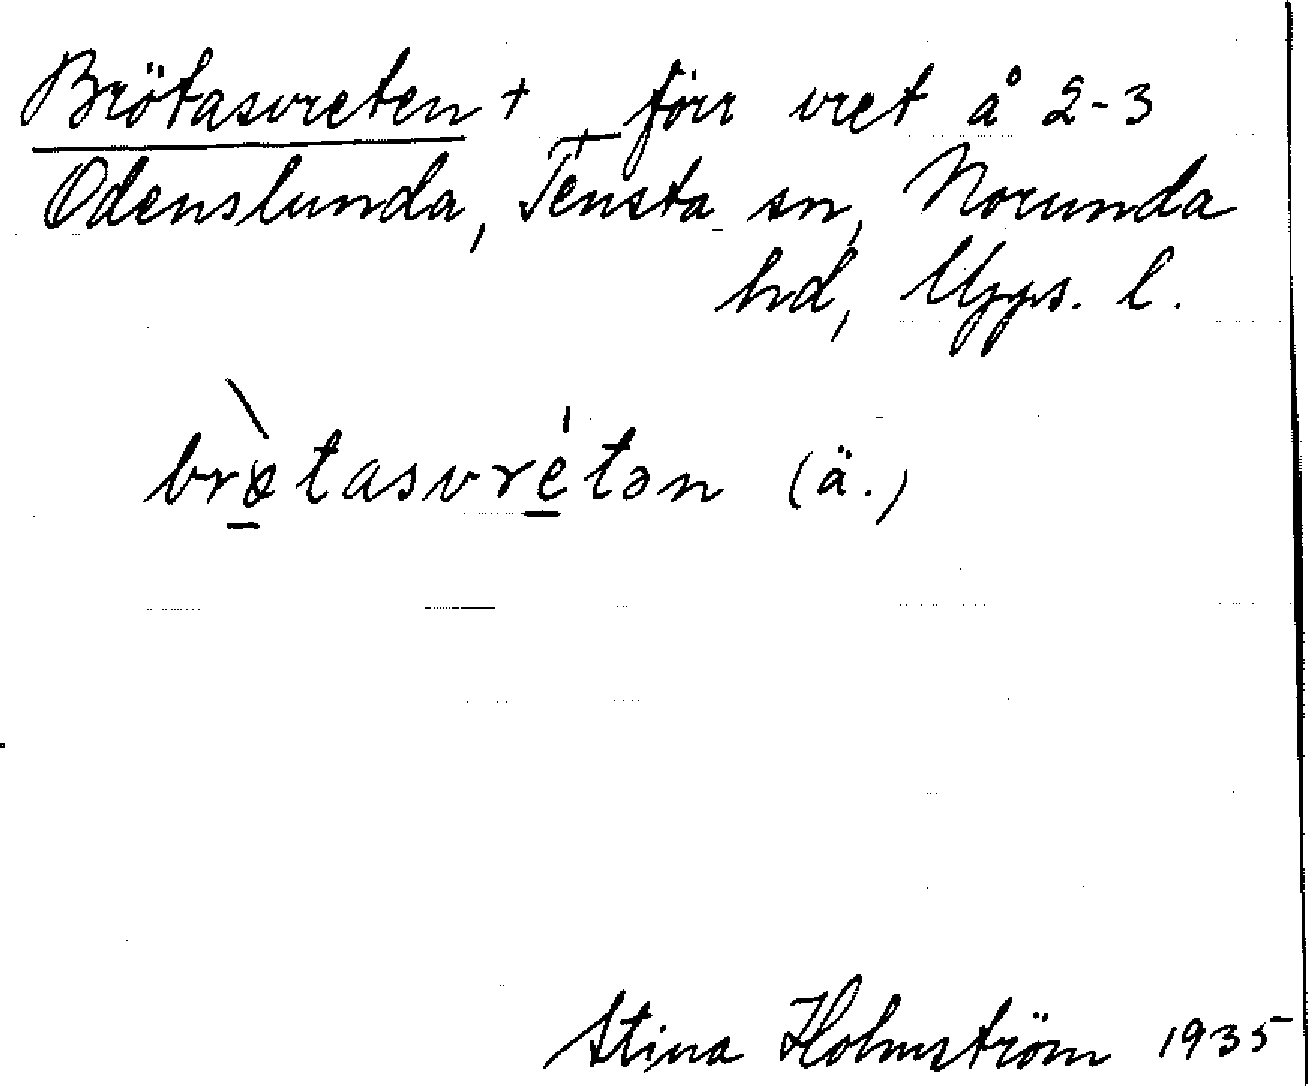 Brötasvreten + förr vret å 2-3
Odenslunda, Tensta sn, Norunda
hd, Upps. l.
brø̀tasvrétən (ä.)
Stina Holmström 1935